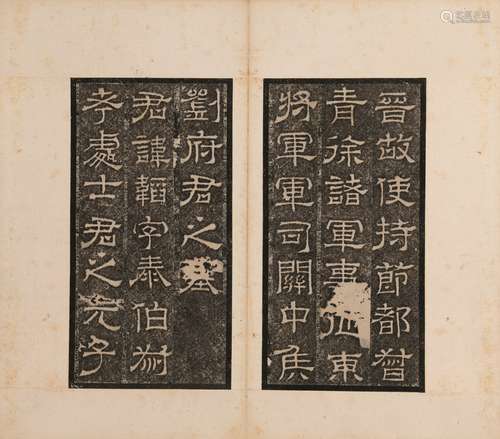 晉故使持節都督
青徐諸軍事征東
將軍軍司關中侯
劉府君之墓
君諱韜字泰伯
考處士君之元子